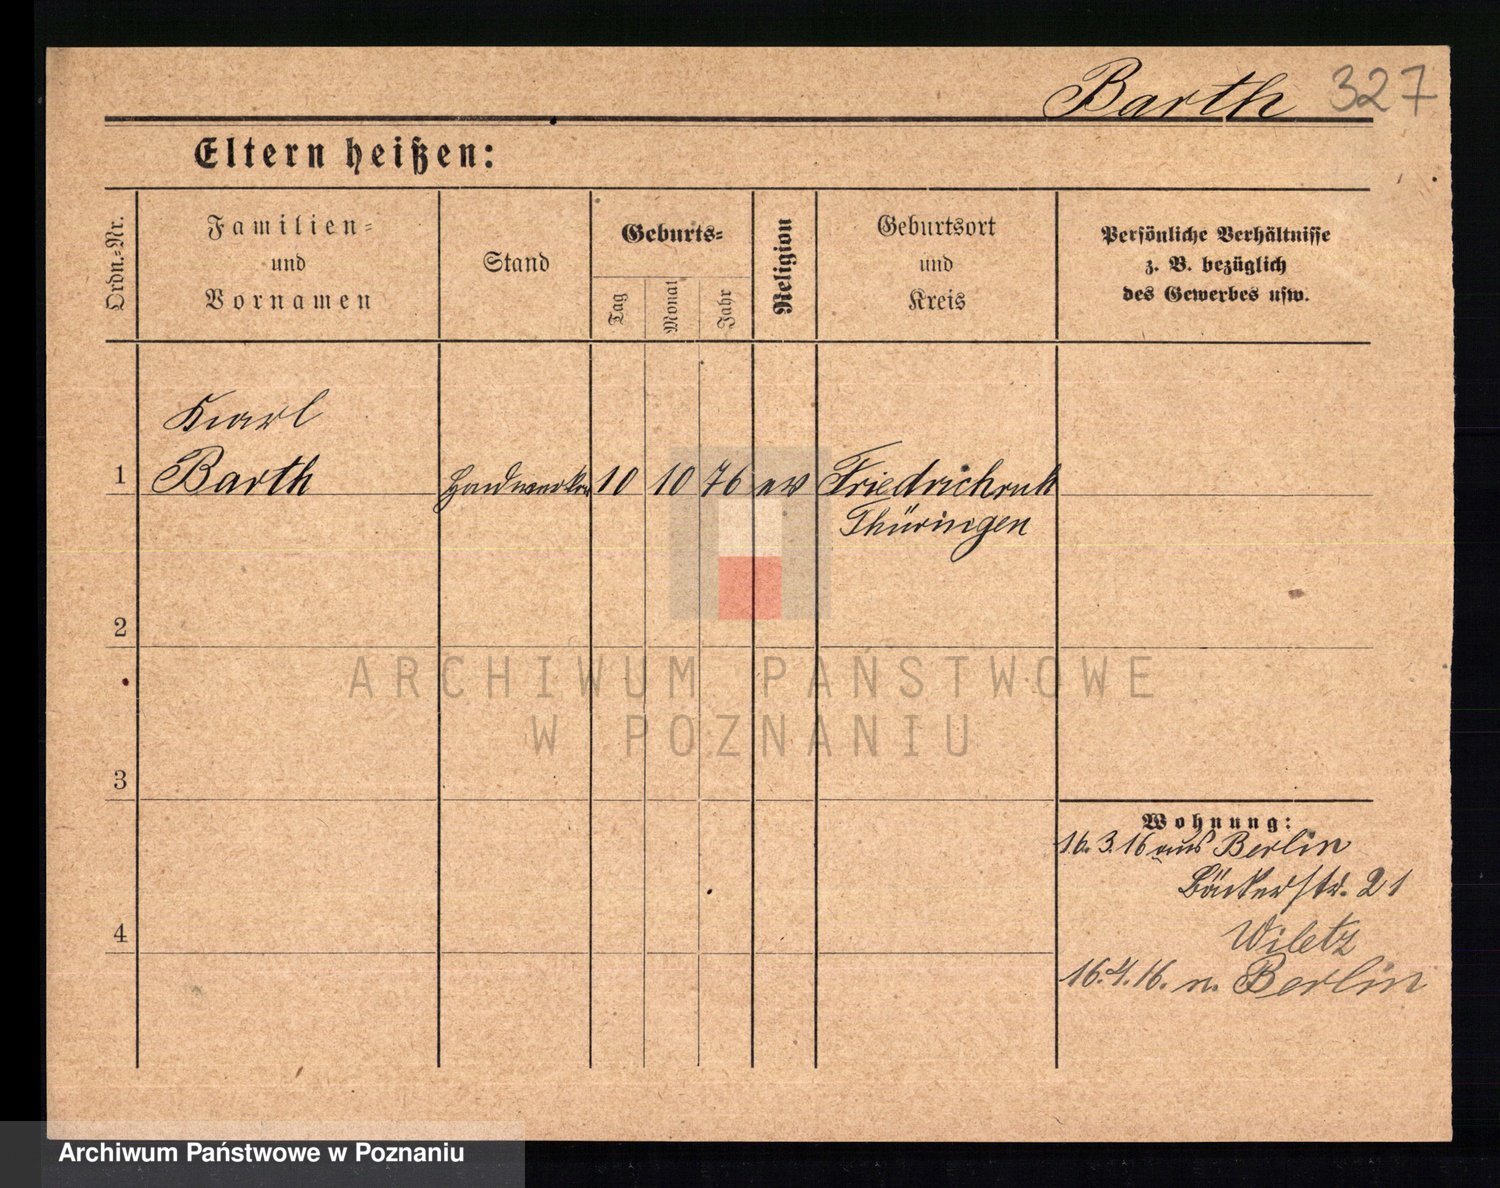 Barth 327
Eltern heißen:
Ordn.-Nr.
Familien-
und
Vornamen
Stand
Geburts-
Tag
Monat
Jahr
Religion
Geburtsort
und
Kreis
Persönliche Verhältnisse
z. B. bezüglich
des Gewerbes usw.
Karl
1 Barth 10 10 76 ev
Thüringen
2
3
4
Wohnung:
16.3.16 aus Berlin
Bäckerstr. 21
Wiletz
16.4.16. n. Berlin
ARCHIWUM PAŃSTWOWE
W POZNANIU
Archiwum Państwowe w Poznaniu